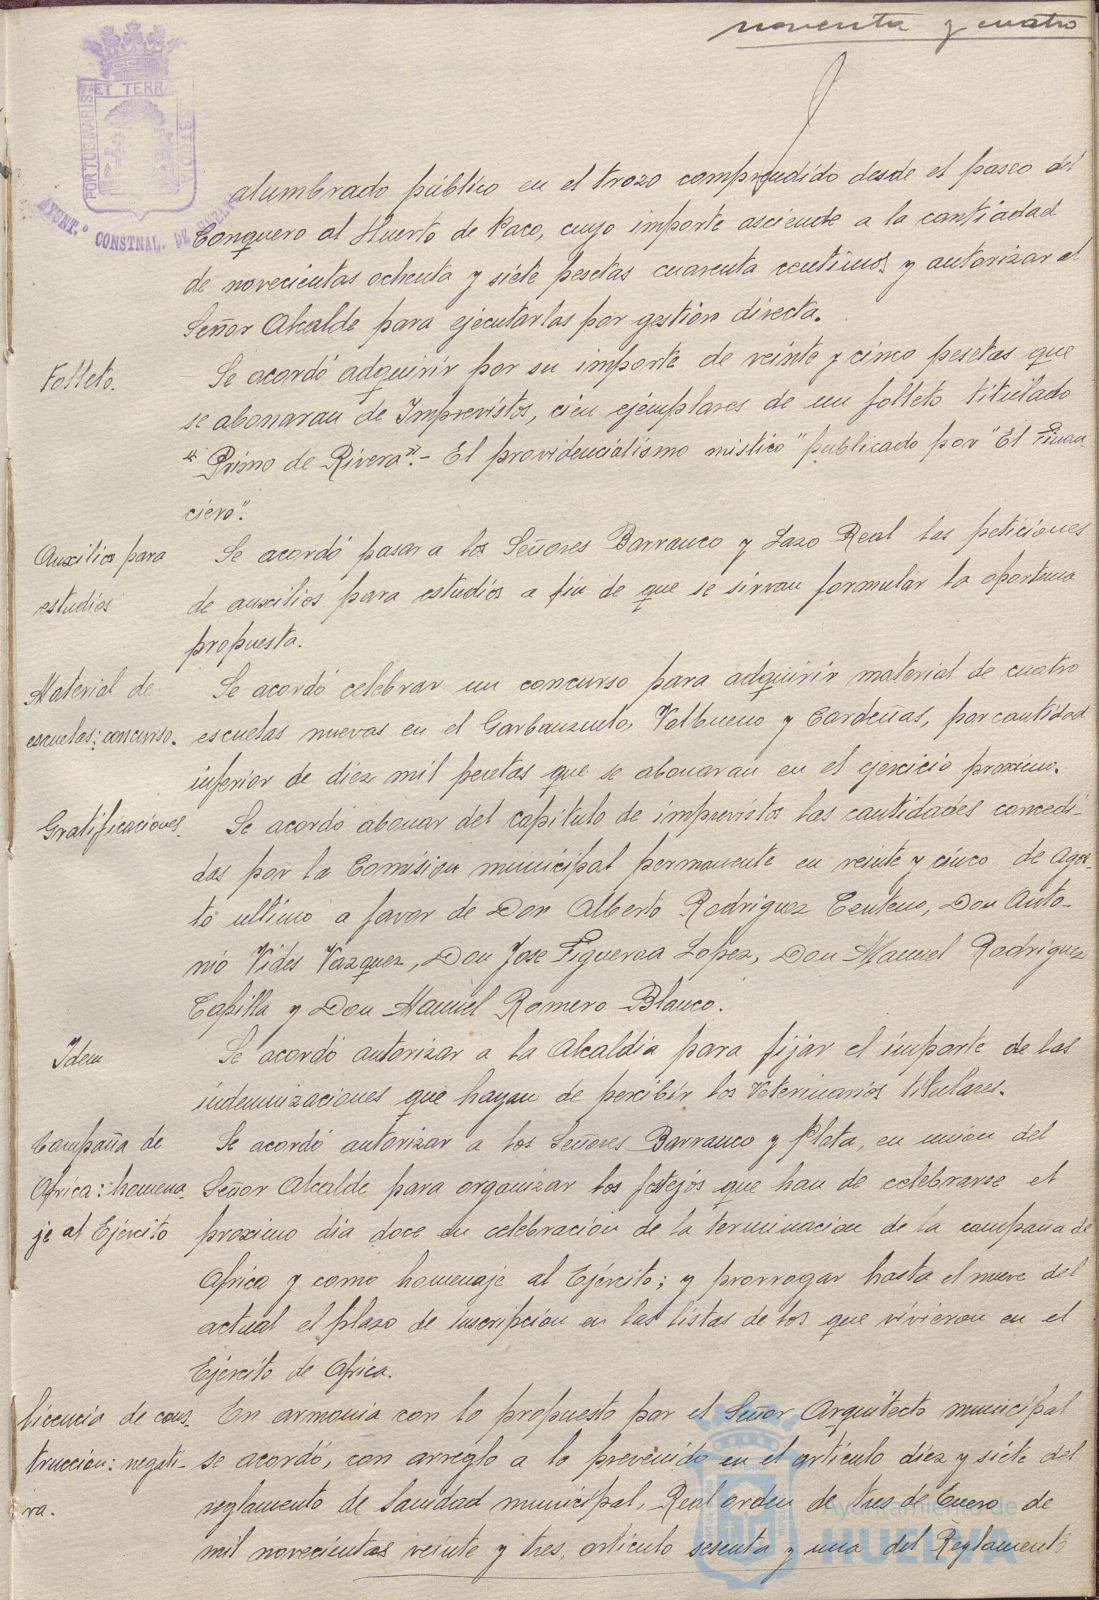 noventa y cuatro
PORTUS MARIS ET TERRÆ CUSTODIA
AYUNT.º CONSTNAL. DE HUELVA
alumbrado público en el trozo comprendido desde el paseo del
Conquero al Huerto de Paco, cuyo importe asciende a la cantidad
de novecientas ochenta y siete pesetas cuarenta centimos y autorizar al
Señor Alcalde para ejecutarlas por gestión directa.
Folleto.
Se acordó adquirir por su importe de veinte y cinco pesetas que
se abonaran de Imprevistos, cien ejemplares de un folleto titulado
"Primo de Rivera".- El providencialismo mistico" publicado por "El Finan
ciero".
Auxilios para
estudios
Se acordó pasar a los Señores Barranco y Lazo Real las peticiones
de auxilios para estudios a fin de que se sirvan formular la oportuna
propuesta.
Material de
escuelas: concurso.
Se acordó celebrar un concurso para adquirir material de cuatro
escuelas nuevas en el Garbanzuelo, Valbueno y Cardeñas, por cantidad
inferior de diez mil pesetas que se abonaran en el ejercicio proximo.
Gratificaciones.
Se acordó abonar del capitulo de imprevistos las cantidades concedi-
das por la Comision municipal permanente en veinte y cinco de Agos-
to ultimo a favor de Don Alberto Rodriguez Centeno, Don Anto-
nio Vides Vazquez, Don Jose Figueroa Lopez, Don Manuel Rodriguez
Capilla y Don Manuel Romero Blanco.
Idem
Se acordó autorizar a la Alcaldia para fijar el importe de las
indemnizaciones que hayan de percibir los Veterinarios titulares.
Campaña de
Africa: homena
je al Ejército
Se acordó autorizar a los Señores Barranco y Plata, en unión del
Señor Alcalde para organizar los festejos que han de celebrarse el
proximo dia doce en celebracion de la terminacion de la campaña de
Africa y como homenaje al Ejército; y prorrogar hasta el nueve del
actual el plazo de inscripcion en las listas de los que vivieron en el
Ejército de Africa.
licencia de cons
trucción: negati-
va.
En armonia con lo propuesto por el Señor Arquitecto municipal
se acordó, con arreglo a lo prevenido en el articulo diez y siete del
reglamento de Sanidad municipal, Real orden de tres de Enero de
mil novecientos veinte y tres, articulo sesenta y uno del Reglamento
Ayuntamiento de
HUELVA